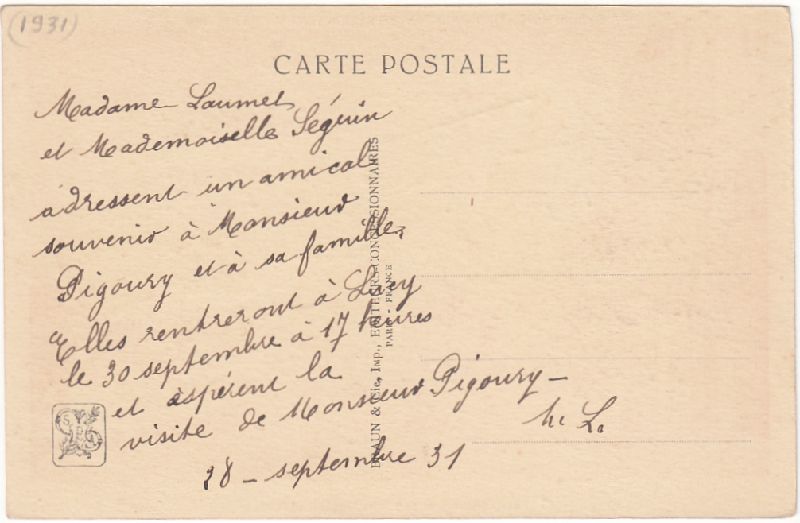 (1931)
CARTE POSTALE
Madame Laumet
et Mademoiselle Séguin
adressent un amical
souvenir à Monsieur
Pigoury et à sa famille.
Elles rentreront à Lucy
le 30 septembre à 17 heures
et espérent la
visite de Monsieur Pigoury —
M. L.
28 - septembre 31
BRAUN & Cie, Imp., EDITEURS-CONCESSIONNAIRES
PARIS - FRANCE